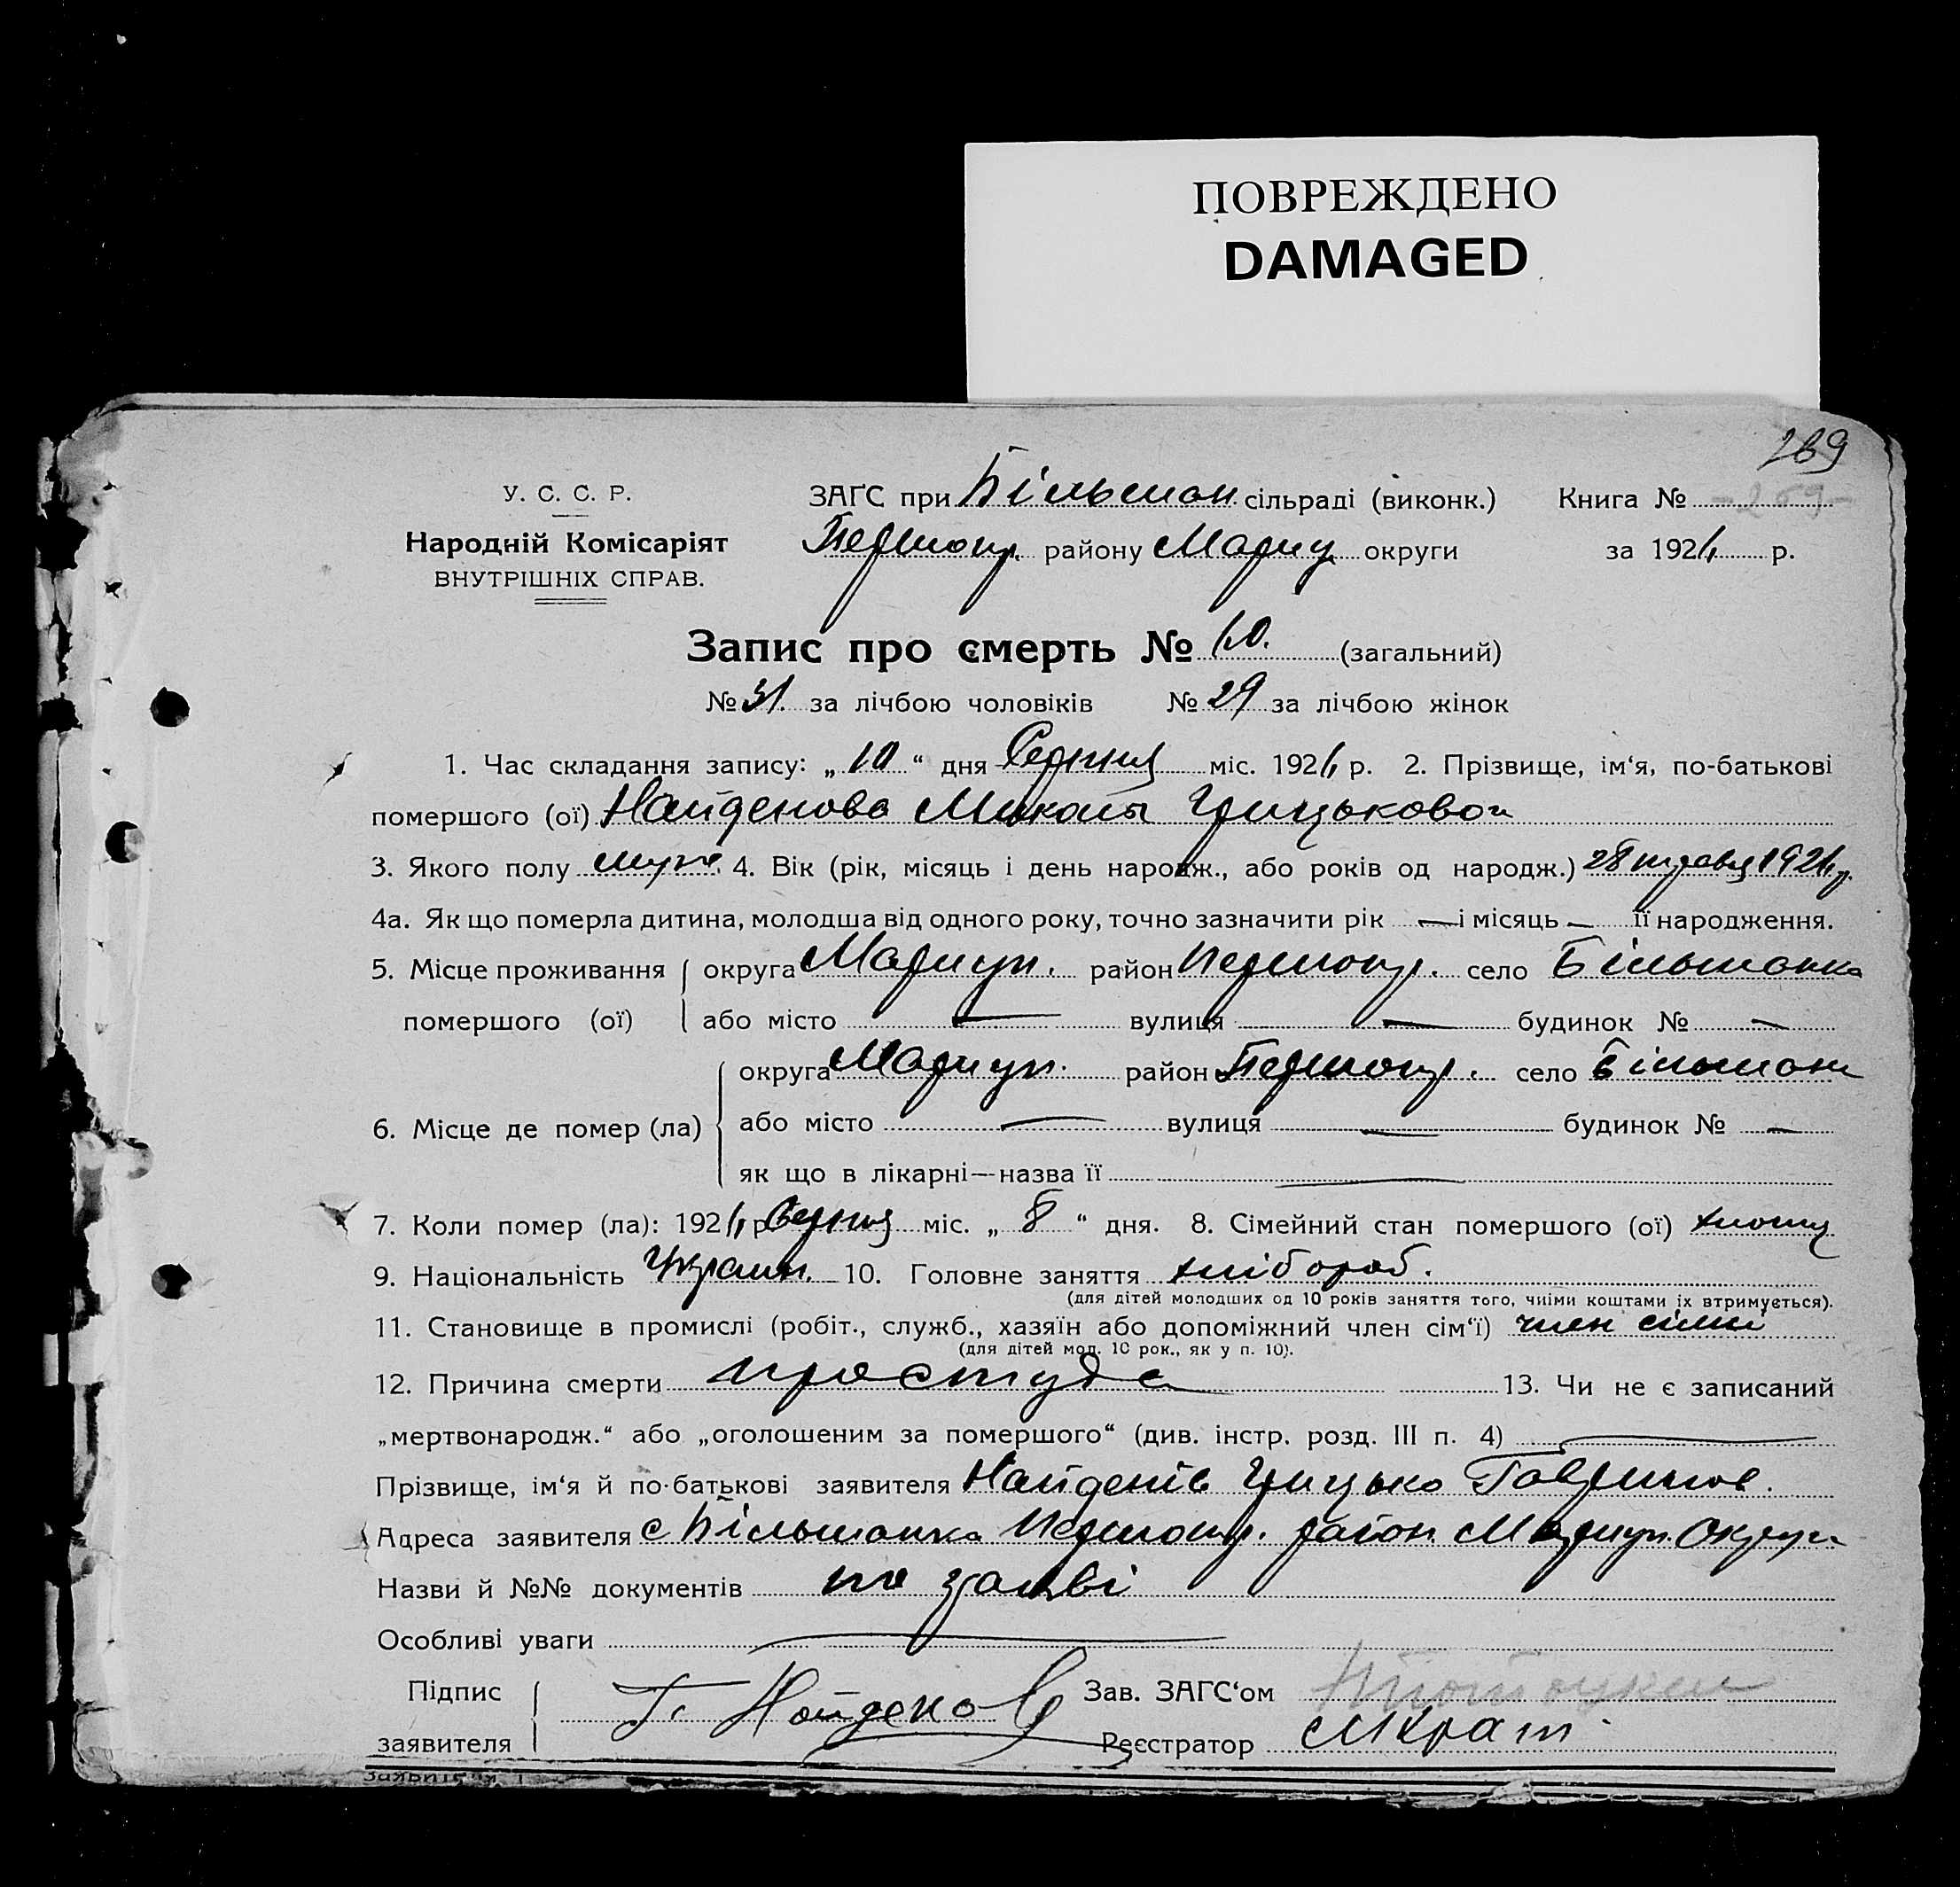 ПОВРЕЖДЕНО
DAMAGED
269
У. С. С. Р.
Народній Комісаріят
ВНУТРІШНІХ СПРАВ.
ЗАҐС при Більшан. сільраді (виконк.) Книга № -269-
Першотр. району Маріу округи за 192 р.
Запис про смерть № 60. (загальний)
№ 31. за лічбою чоловіків № 29 за лічбою жінок
1. Час складання запису: „10“ дня Серпня міс. 192 р. 2. Прізвище, ім‘я, по-батькові
помершого (ої) Найденова Миколы Грицьковои
3. Якого полу муж. 4. Вік (рік, місяць і день народж., або років од народж.) 28 травня 192 р.
4а. Як що померла дитина, молодша від одного року, точно зазначити рік — і місяць — її народження.
5. Місце проживання округа Мариуп. район Першотр. село Більшанка
помершого (ої) або місто — вулиця — будинок № —
округа Мариуп. район Першотр. село Більшан
6. Місце де помер (ла) або місто — вулиця — будинок № —
як що в лікарні—назва її —
7. Коли помер (ла): 192 р. Серпня міс. „8“ дня. 8. Сімейний стан помершого (ої)
9. Національність Украин. 10. Головне заняття хлібороб.
(для дітей молодших од 10 років заняття того, чиїми коштами їх втримується).
11. Становище в промислі (робіт., служб., хазяїн або допоміжний член сім‘ї) член сімї
(для дітей мол. 10 рок., як у п. 10).
12. Причина смерти простуда 13. Чи не є записаний
„мертвонародж.“ або „оголошеним за помершого“ (див. інстр. розд. III п. 4) —
Прізвище, ім‘я й по-батькові заявителя Найденів Грицько Гаврилов.
Адреса заявителя с Більшанка Першотр. район Мариуп. Округи
Назви й №№ документів по заяві
Особливі уваги —
Підпис заявителя Г. Найденов Зав. ЗАГС‘ом
Реєстратор